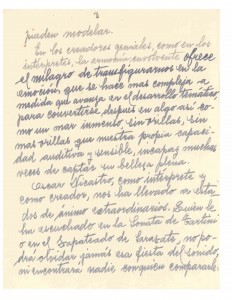 2
pueden modelar.
En los creadores geniales, como en los
intérpretes, la armonía envolvente ofrece
el milagro de transfigurarnos en la
emoción que se hace mas compleja a
medida que avanza en el desarrollo temático,
para convertirse después en algo así co-
mo un mar inmenso, sin orillas, sin
mas orillas que nuestra propia capaci-
dad auditiva y sensible, incapaz muchas
veces de captar su belleza plena.
Oscar Nicastro, como intérprete y
como creador, nos ha llevado a esta-
dos de ánimo extraordinarios. Quien le
ha escuchado en la Sonata de Tartini
o en el Zapateado de Sarasate, no po-
drá olvidar jamás esa fiesta del sonido,
ni encontrará nadie con quien compararle.